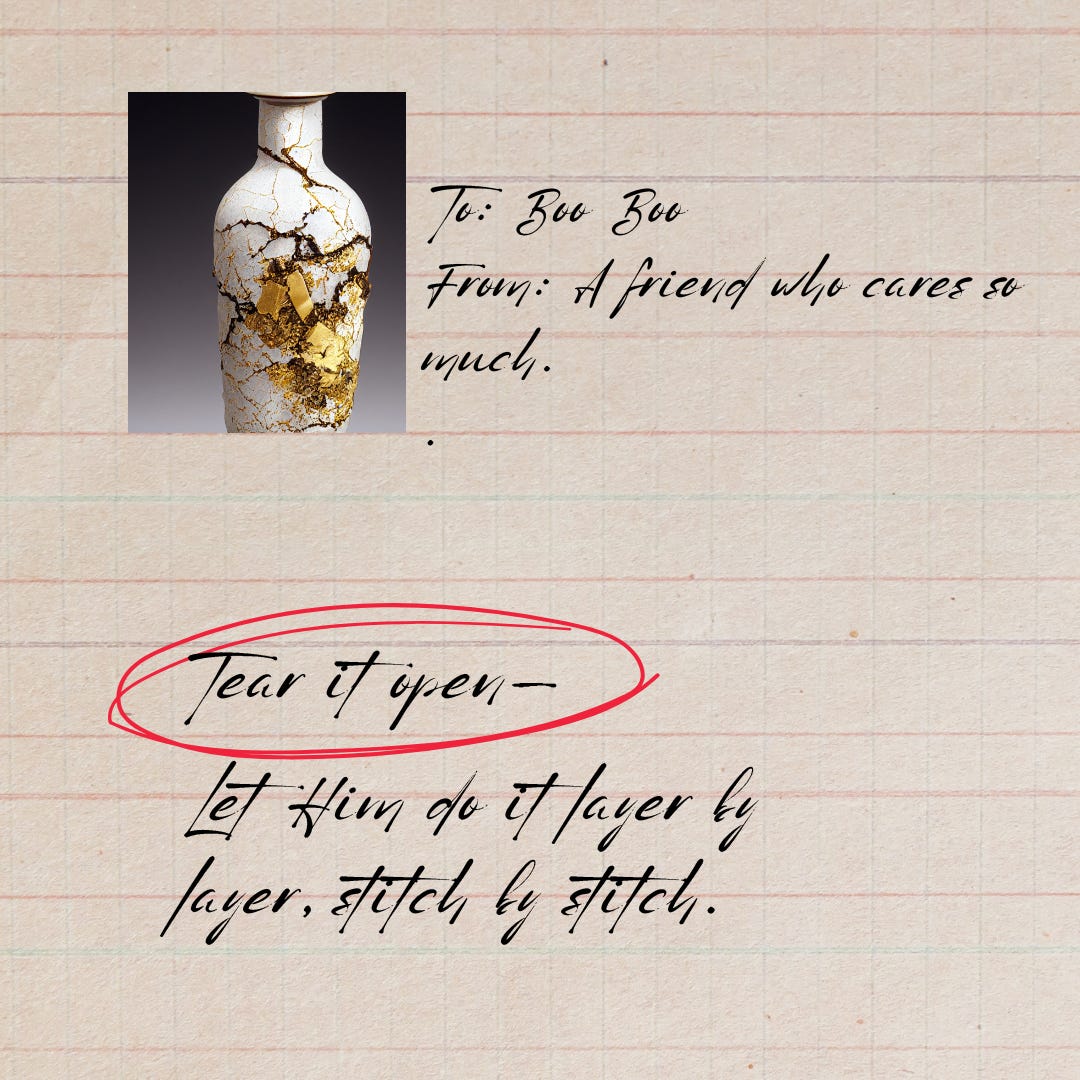 To: Boo Boo
From: A friend who cares so
much.
.
Tear it open—
Let Him do it layer by
layer, stitch by stitch.